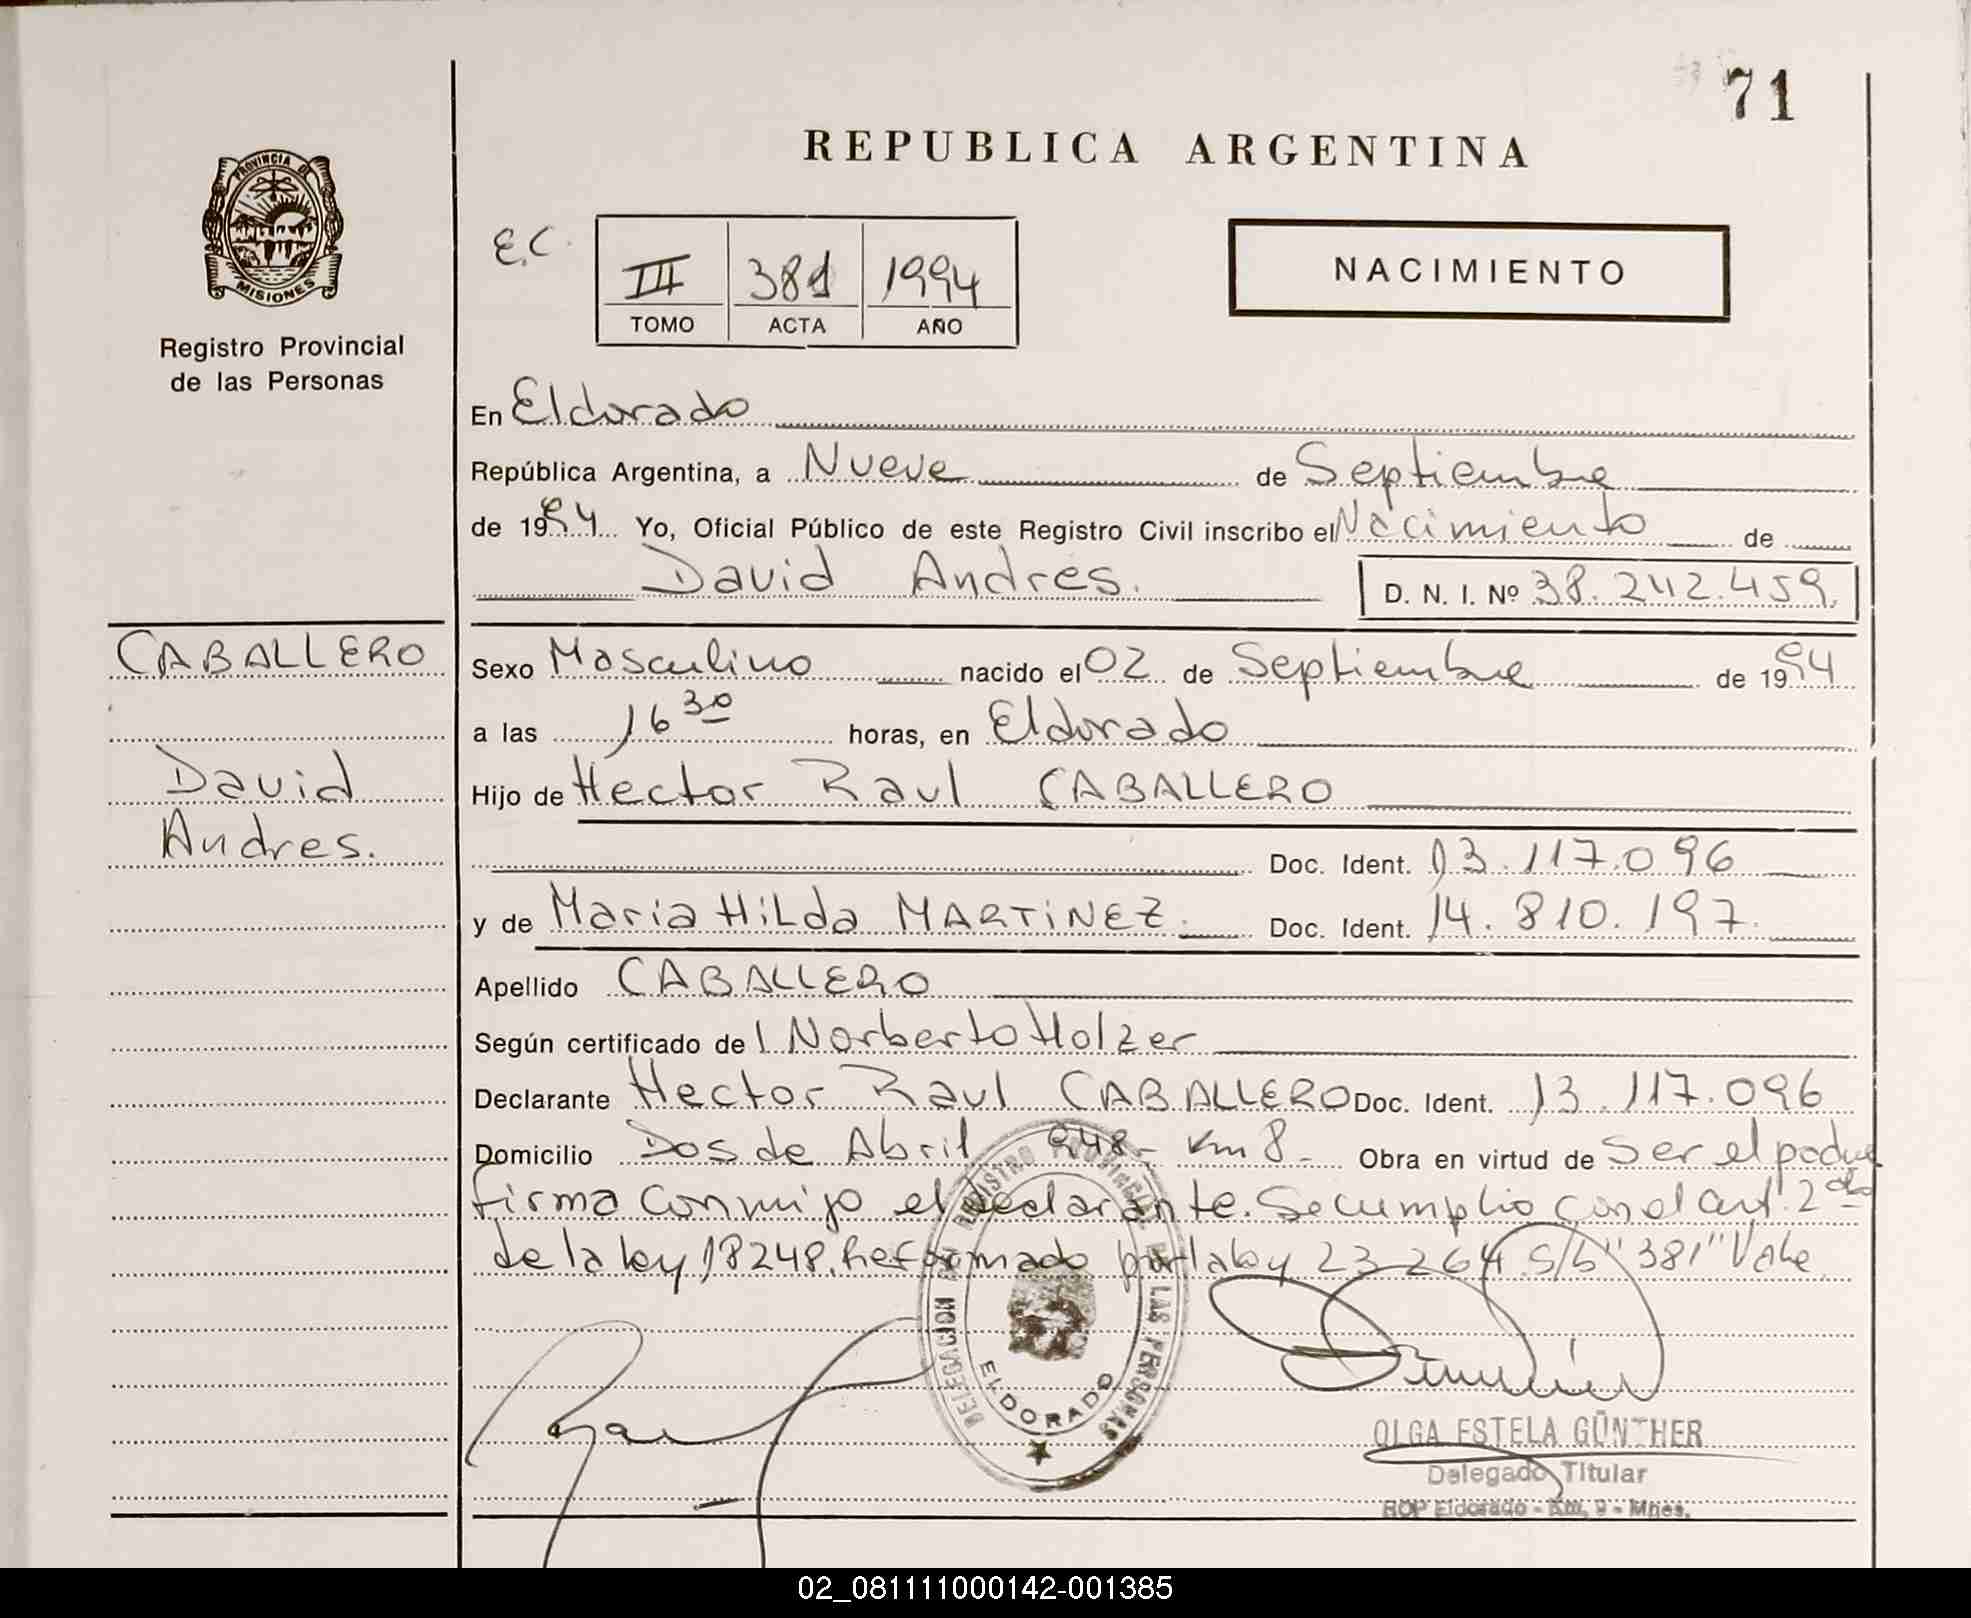 71
REPUBLICA ARGENTINA
PROVINCIA DE
MISIONES
Registro Provincial
de las Personas
E.C.
III 381 1994
TOMO ACTA AÑO
NACIMIENTO
En Eldorado
República Argentina, a Nueve de Septiembre
de 1994 Yo, Oficial Público de este Registro Civil inscribo el Nacimiento de
David Andres. D. N. I. Nº 38.242.459.
CABALLERO
David
Andres.
Sexo Masculino nacido el 02 de Septiembre de 1994
a las 16 30 horas, en Eldorado
Hijo de Hector Raul CABALLERO
Doc. Ident. 13.117.096
y de Maria Hilda MARTINEZ. Doc. Ident. 14.810.197.
Apellido CABALLERO
Según certificado de Norberto Holzer
Declarante Hector Raul CABALLERO Doc. Ident. 13.117.096
Domicilio Dos de Abril 948- Km 8- Obra en virtud de ser el padre
firma conmigo el declarante. Se cumplio con el art. 2do
de la ley 18248. Reformado por la ley 23264 s/b "381" Vale
DELEGACION REGISTRO PROVINCIAL DE LAS PERSONAS
ELDORADO
OLGA ESTELA GÜNTHER
Delegado Titular
RDP Eldorado - Km. 9 - Mnes.
02_081111000142-001385